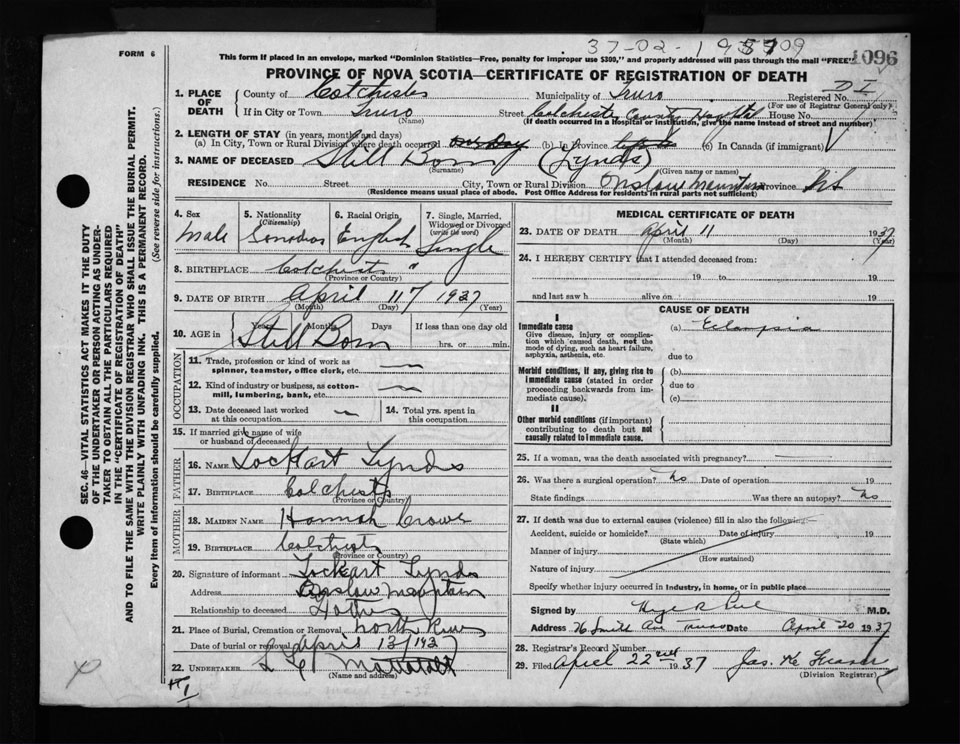 37-02-195709
FORM 6
This form if placed in an envelope, marked "Dominion Statistics—Free, penalty for improper use $300," and properly addressed will pass through the mail "FREE"
1096
PROVINCE OF NOVA SCOTIA—CERTIFICATE OF REGISTRATION OF DEATH
1. PLACE OF DEATH
County of Colchester Municipality of Truro Registered No. D I
(For use of Registrar General only)
If in City or Town Truro (Name) Street Colchester County Hospital House No.
(If death occurred in a Hospital or institution, give the name instead of street and number)
2. LENGTH OF STAY (in years, months and days)
(a) In City, Town or Rural Division where death occurred (b) In Province (c) In Canada (if immigrant)
3. NAME OF DECEASED Still Born (Lynds)
(Surname) (Given name or names)
RESIDENCE No. Street City, Town or Rural Division Onslow Mountain Province N.S
(Residence means usual place of abode. Post Office Address for residents in rural parts not sufficient)
4. Sex Male
5. Nationality (Citizenship)
6. Racial Origin English
7. Single, Married, Widowed or Divorced (write the word) Single
8. BIRTHPLACE Colchester "
(Province or Country)
9. DATE OF BIRTH April 11 1937
(Month) (Day) (Year)
10. AGE in Years Months Days If less than one day old
Still Born hrs. or min.
OCCUPATION
11. Trade, profession or kind of work as spinner, teamster, office clerk, etc. —
12. Kind of industry or business, as cotton-mill, lumbering, bank, etc. —
13. Date deceased last worked at this occupation —
14. Total yrs. spent in this occupation
15. If married give name of wife or husband of deceased
FATHER
16. NAME Lockhart Lynds
17. BIRTHPLACE Colchester
(Province or Country)
MOTHER
18. MAIDEN NAME Hannah Crowe
19. BIRTHPLACE Colchester
(Province or Country)
20. Signature of informant Lockhart Lynds
Address Onslow Mountain
Relationship to deceased Father
21. Place of Burial, Cremation or Removal North River
Date of burial or removal April 13 1937
22. UNDERTAKER Mattatall
(Name and address)
MEDICAL CERTIFICATE OF DEATH
23. DATE OF DEATH April 11 1937
(Month) (Day) (Year)
24. I HEREBY CERTIFY that I attended deceased from:
19 to 19
and last saw h alive on 19
CAUSE OF DEATH
I
Immediate cause
Give disease, injury or complication which caused death, not the mode of dying, such as heart failure, asphyxia, asthenia, etc.
(a) Eclampsia
due to
Morbid conditions, if any, giving rise to immediate cause (stated in order proceeding backwards from immediate cause).
(b)
due to
(c)
II
Other morbid conditions (if important) contributing to death but not causally related to immediate cause.
25. If a woman, was the death associated with pregnancy? —
26. Was there a surgical operation? No Date of operation 19
State findings Was there an autopsy? No
27. If death was due to external causes (violence) fill in also the following:—
Accident, suicide or homicide? Date of injury 19
(State which)
Manner of injury
(How sustained)
Nature of injury
Specify whether injury occurred in industry, in home, or in public place
Signed by M.D.
Address 76 Smith Ave Truro Date April 20 1937
28. Registrar's Record Number
29. Filed April 22nd 1937 Jas. Mc Fraser
(Division Registrar)
SEC. 46—VITAL STATISTICS ACT MAKES IT THE DUTY
OF THE UNDERTAKER OR PERSON ACTING AS UNDER-
TAKER TO OBTAIN ALL THE PARTICULARS REQUIRED
IN THE "CERTIFICATE OF REGISTRATION OF DEATH"
AND TO FILE THE SAME WITH THE DIVISION REGISTRAR WHO SHALL ISSUE THE BURIAL PERMIT.
WRITE PLAINLY WITH UNFADING INK. THIS IS A PERMANENT RECORD.
Every item of information should be carefully supplied. (See reverse side for instructions.)